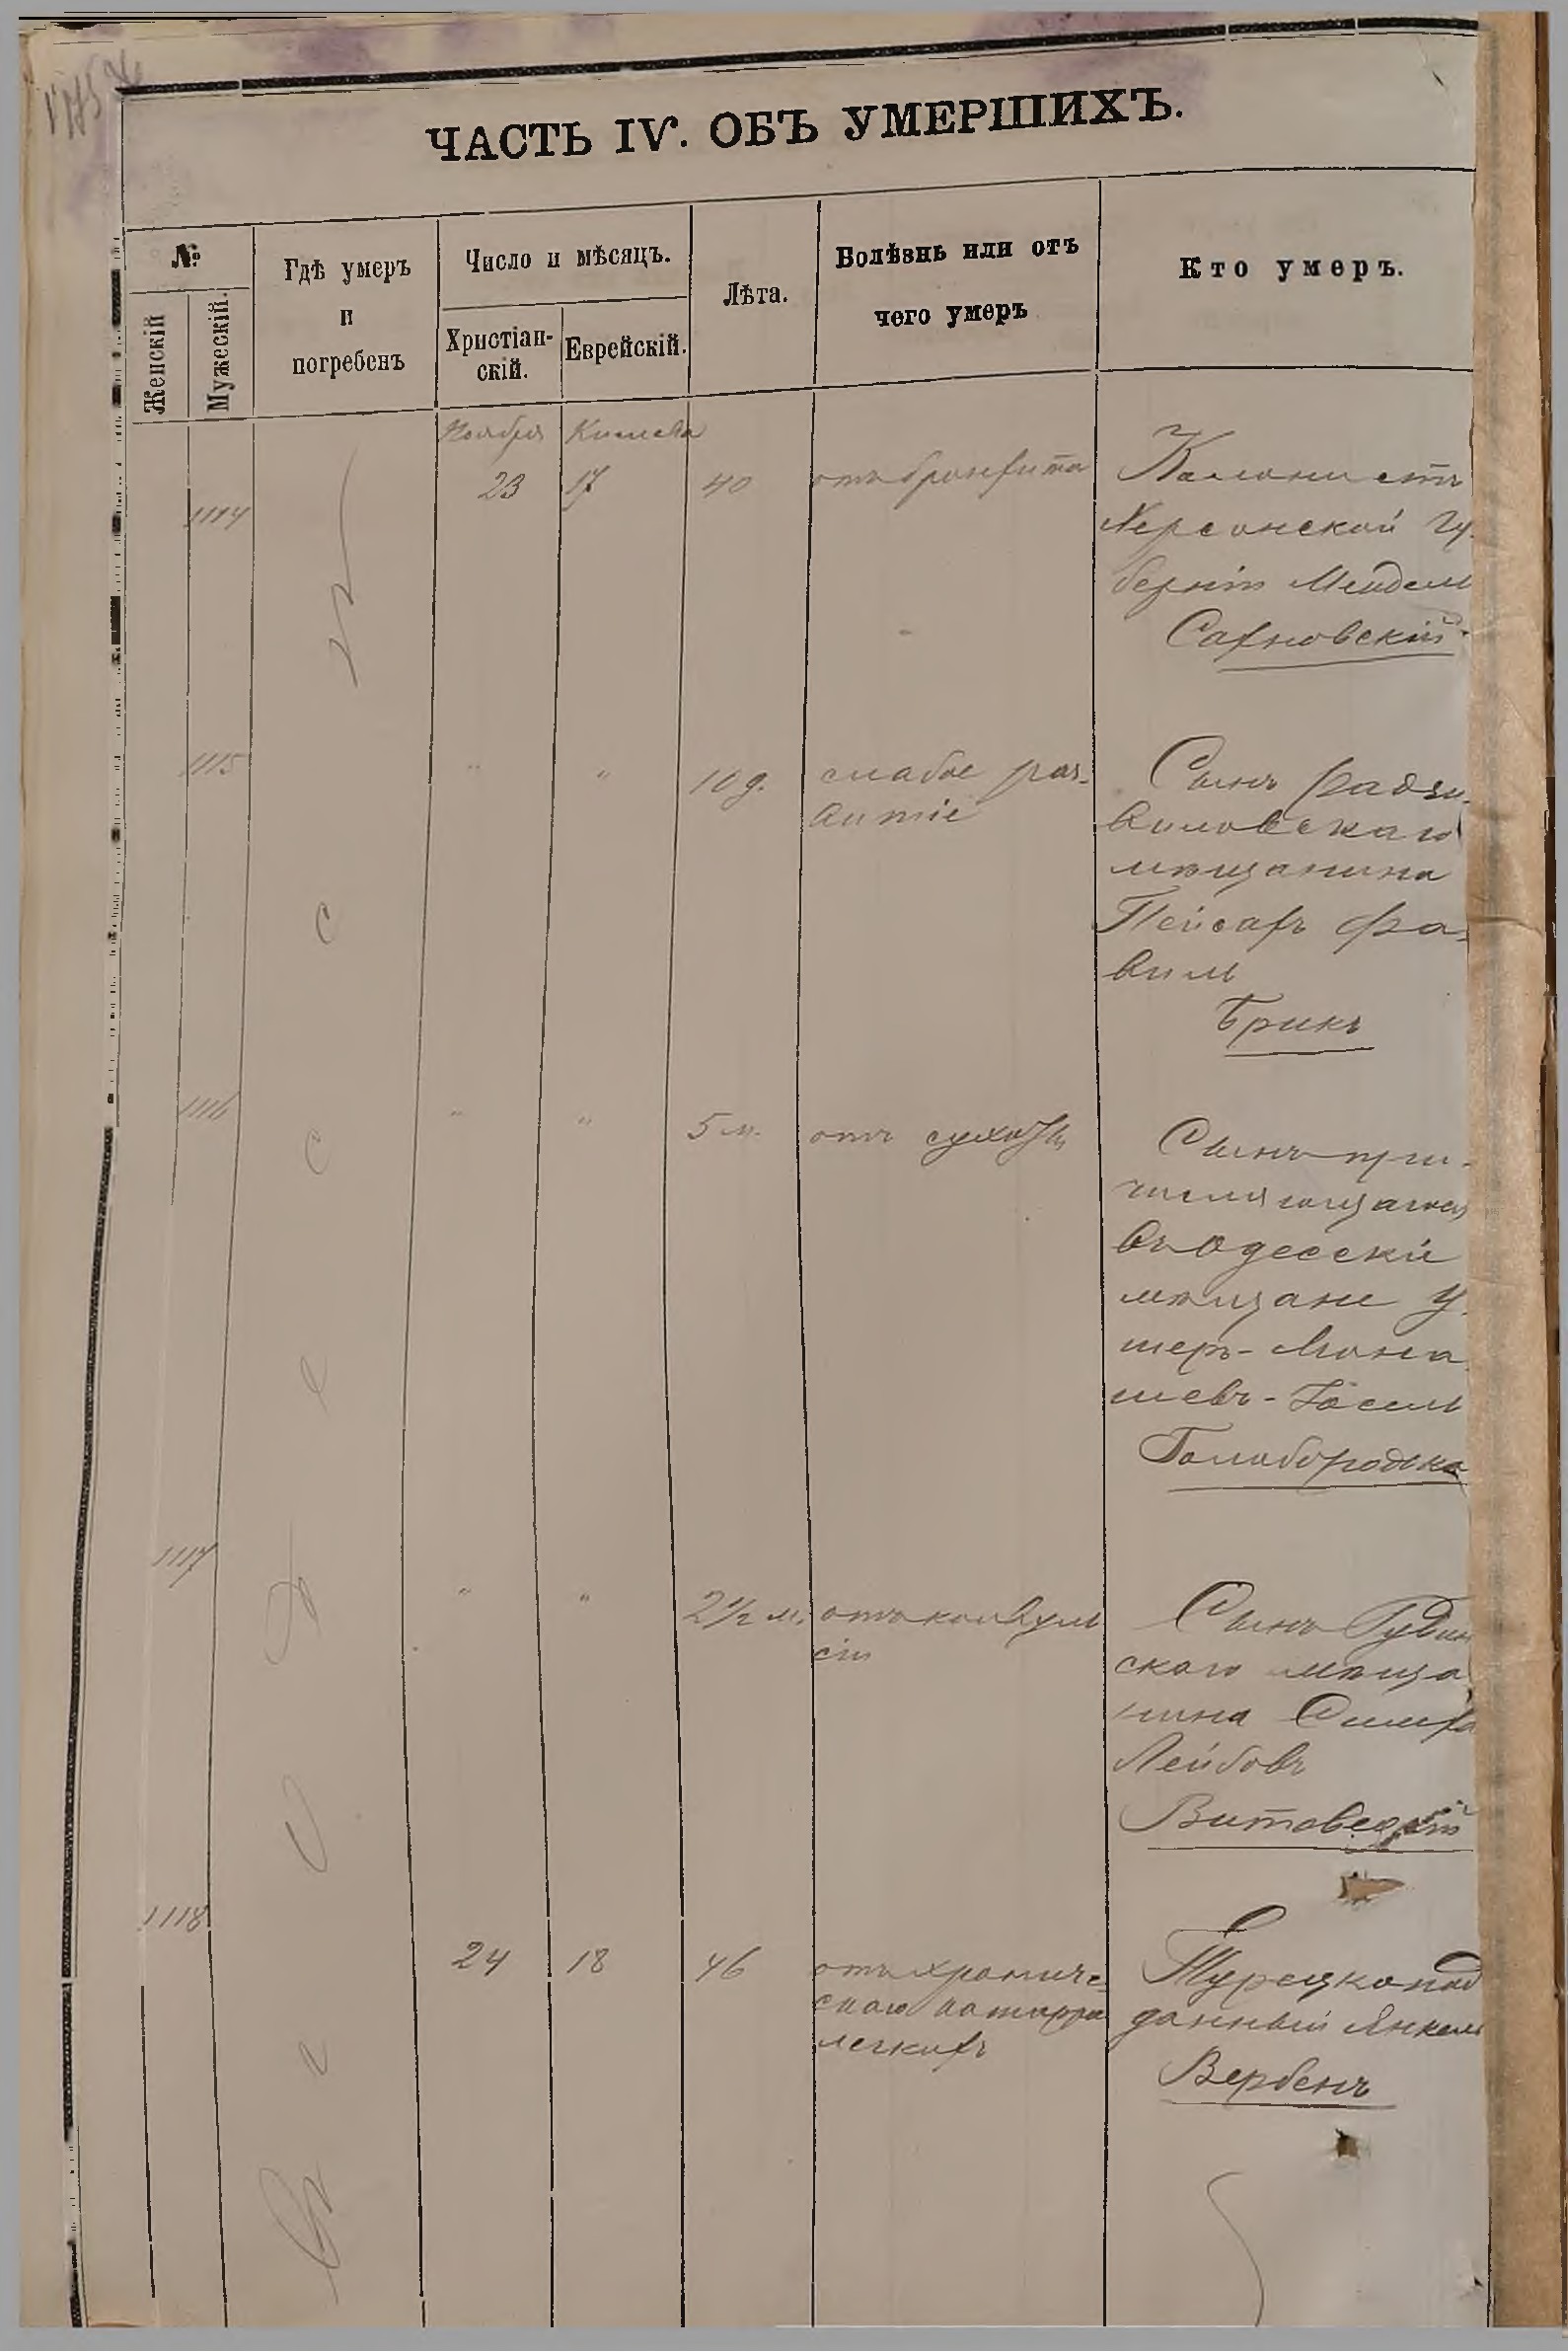 ЧАСТЬ IV. ОБЪ УМЕРШИХЪ.
№
Женскій
Мужескій.
Гдѣ умеръ
и
погребенъ
Число и мѣсяцъ.
Христіан-
скій.
Еврейскій.
Лѣта.
Болѣзнь или отъ
чего умеръ
Кто умеръ.
Ноября Кислева
1114 23 17 40 отъ бронхита Колонистъ
Херсонской Гу-
берніи Мендель
Сахновскій
1115 " " 10 д. слабое раз-
витіе
Сынъ Радзи-
виловскаго
мѣщанина
Пейсахъ Фа-
виль
Брикъ
1116 " " 5 м. отъ сухотки
Сынъ при-
числяющагося
въ Одесскіе
мѣщане У-
шеръ-Мона-
шевъ-Іосель
Голобородько
1117 " " 2 1/2 м. отъ конвуль
сіи
Сынъ
скаго мѣща
нина Симха
Лейбовъ
Витовскій
1118 24 18 46 отъ хрониче-
скаго катарра
легкихъ
Турецкопод
данный Янкель
Вербенъ
Одессѣ